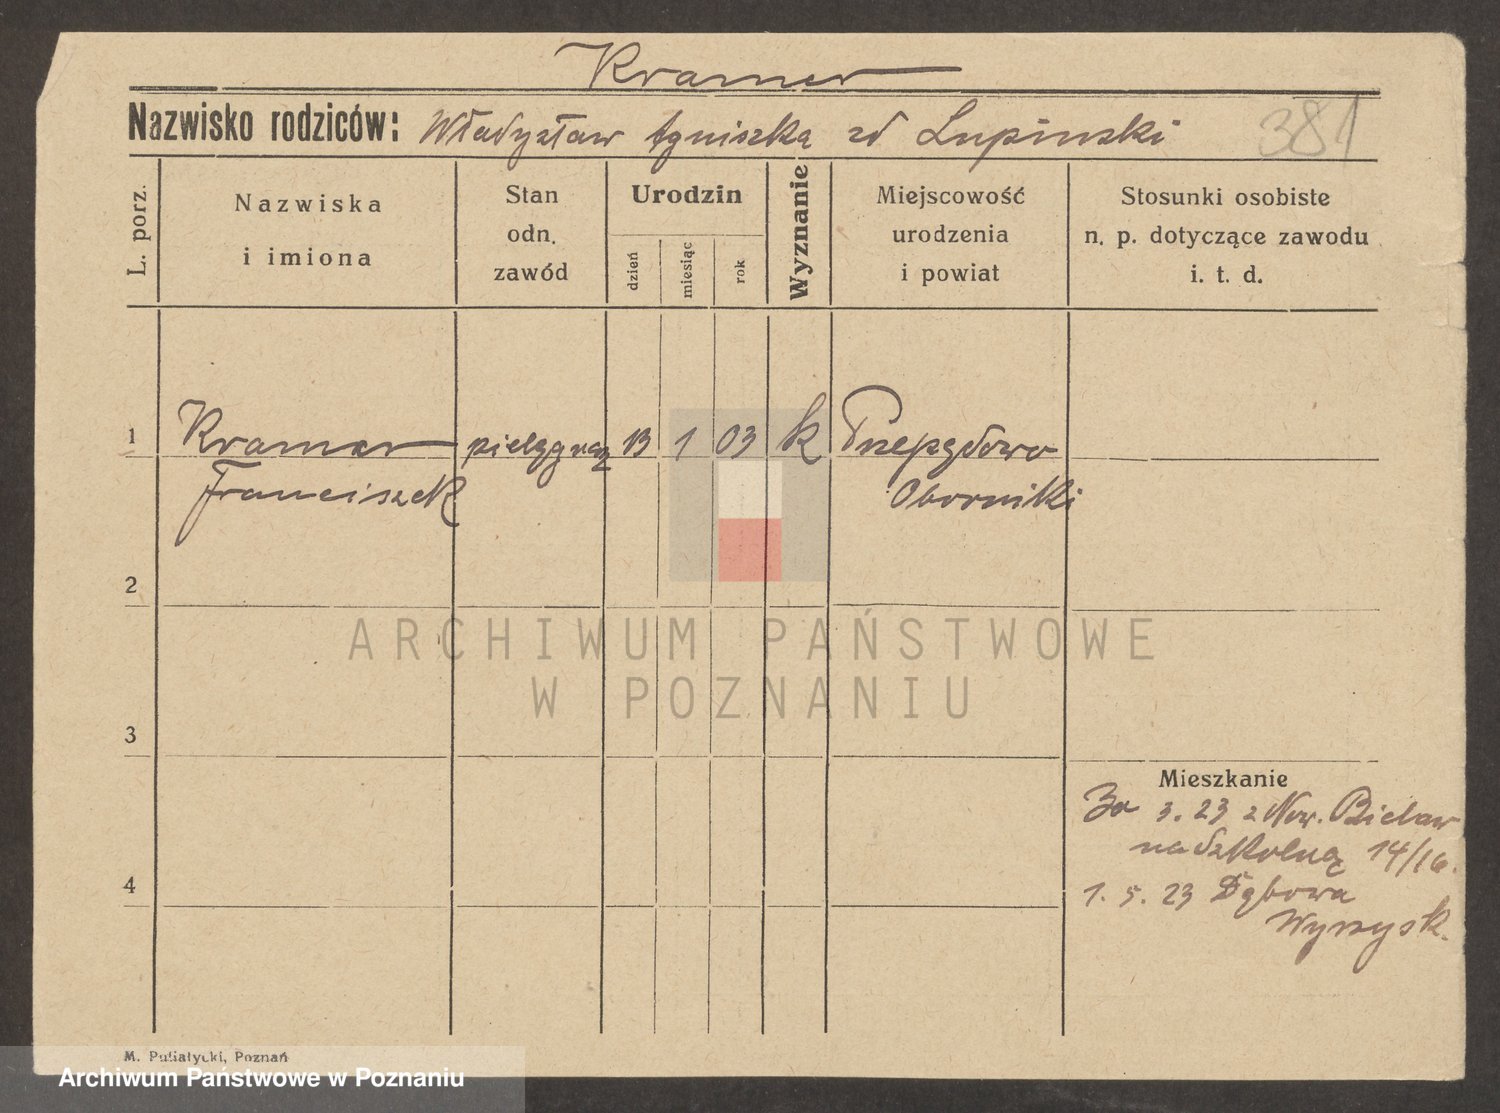 Kramer
Nazwisko rodziców: Władysław Agniszka zd Lupinski
381
L. porz.
Nazwiska
i imiona
Stan
odn.
zawód
Urodzin
dzień
miesiąc
rok
Wyznanie
Miejscowość
urodzenia
i powiat
Stosunki osobiste
n. p. dotyczące zawodu
i. t. d.
1 Kramer 13 1 03 k
Franciszek Oborniki
2
ARCHIWUM PAŃSTWOWE
W POZNANIU
3
Mieszkanie
3. 23 z Now. Bielaw
na Szkolną 14/16.
4
1. 5. 23 Dębowa
Wyrzysk.
M. Putiatycki, Poznań
Archiwum Państwowe w Poznaniu